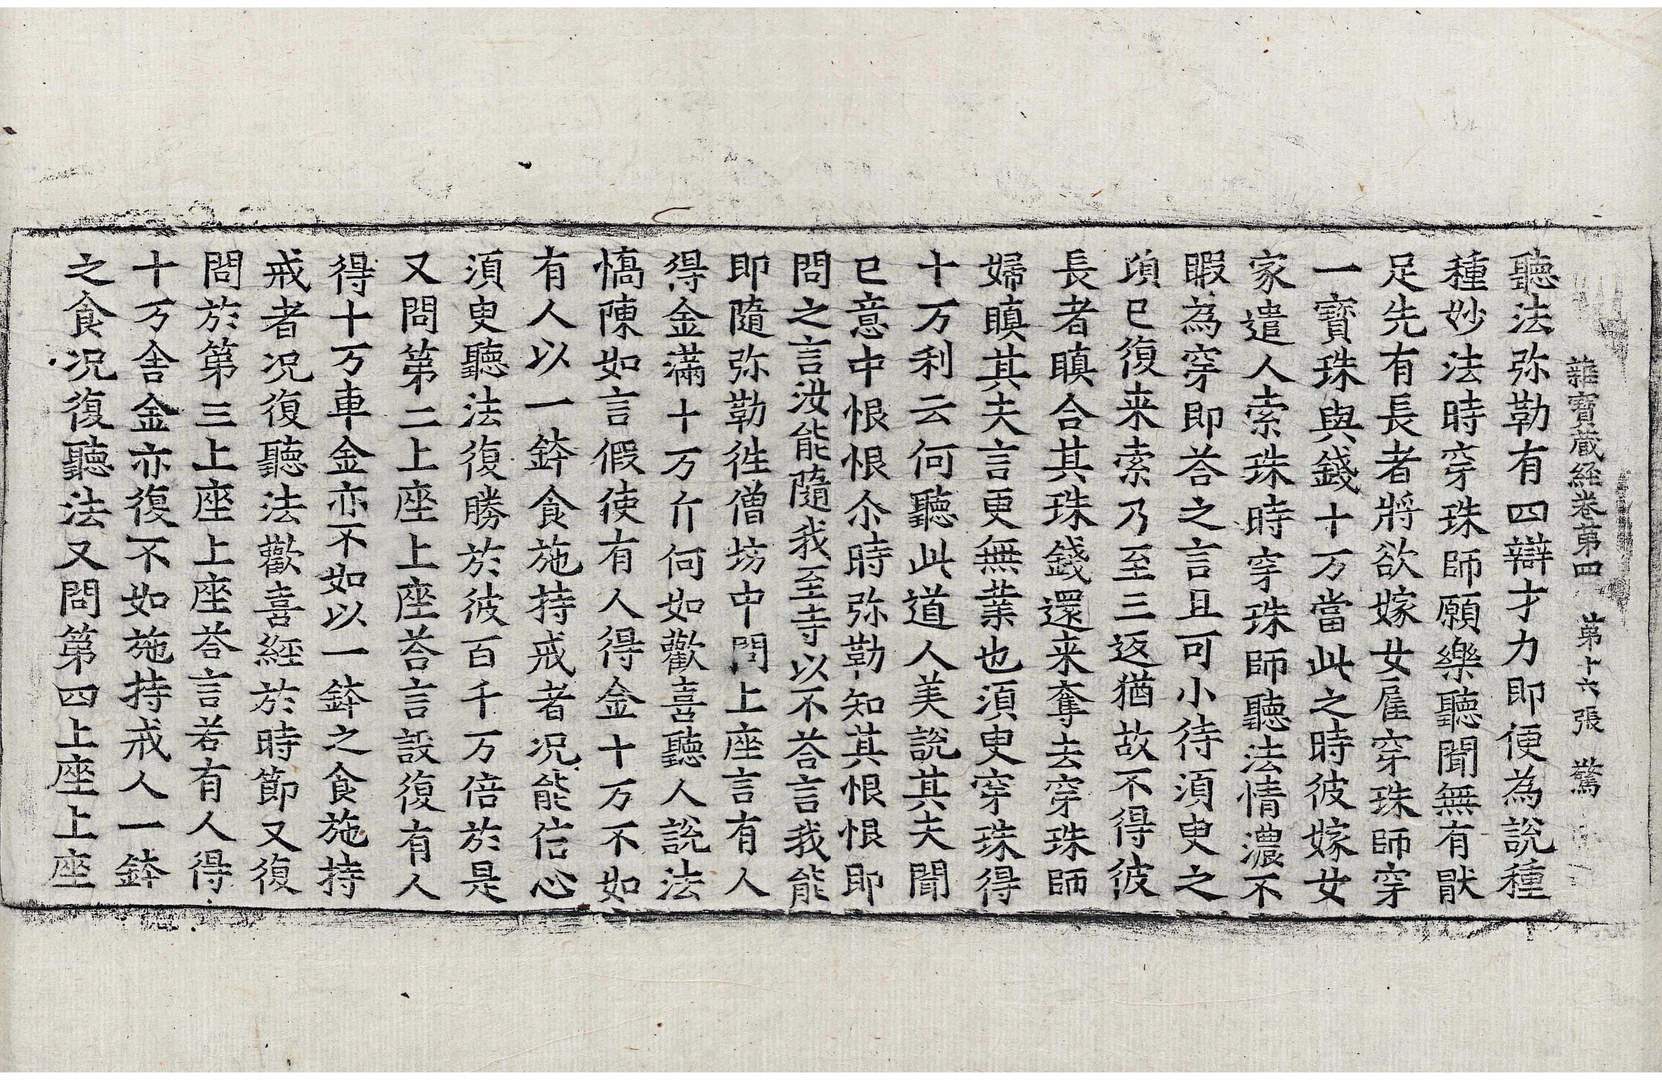 雜寶蔵經卷第四　第十六張　驚
聽法弥勒有四辯才力即便為說種
種妙法時穿珠師願樂聽聞無有猒
足先有長者將欲嫁女雇穿珠師穿
一寶珠與錢十万當此之時彼嫁女
家遣人索珠時穿珠師聽法情濃不
暇為穿即荅之言且可小待須臾之
頃已復来索乃至三返猶故不得彼
長者瞋合其珠錢還来奪去穿珠師
婦瞋其夫言更無業也須臾穿珠得
十万利云何聽此道人美說其夫聞
已意中恨恨尒時弥勒知其恨恨即
問之言汝能隨我至寺以不荅言我能
即隨弥勒徃僧坊中問上座言有人
得金滿十万斤何如歡喜聽人說法
憍陳如言假使有人得金十万不如
有人以一鉢食施持戒者况能信心
須臾聽法復勝於彼百千万倍於是
又問第二上座上座荅言設復有人
得十万車金亦不如以一鉢之食施持
戒者况復聽法歡喜經於時節又復
問於第三上座上座荅言若有人得
十万舍金亦復不如施持戒人一鉢
之食况復聽法又問第四上座上座